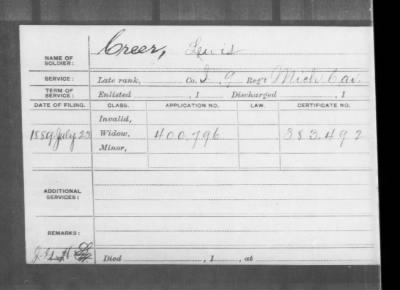 NAME OF SOLDIER: Creer, Lewis
SERVICE: Late rank, Co. I, 9 Reg't Mich Cav.
TERM OF SERVICE: Enlisted , 1 Discharged , 1
DATE OF FILING. CLASS. APPLICATION NO. LAW. CERTIFICATE NO.
Invalid,
1889, July 23 Widow, 400,796 383.492
Minor,
ADDITIONAL SERVICES:
REMARKS:
Died , 1 , at